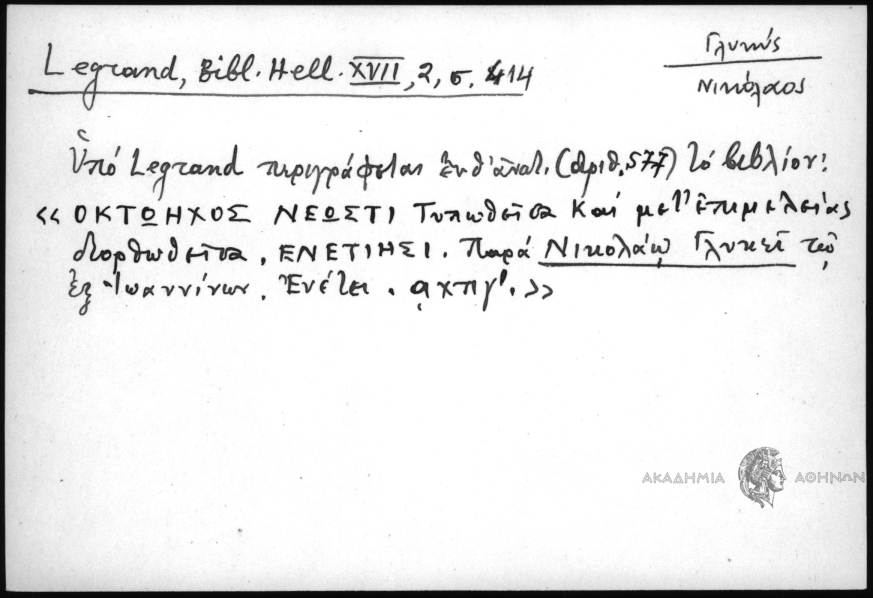 Γλυκύς
Νικόλαος
Legrand, Bibl. Hell. XVII, 2, σ. 414
Ὑπό Legrand περιγράφεται (ἀριθ. 577) τό βιβλίον:
<< ΟΚΤΩΗΧΟΣ ΝΕΩΣΤΙ Τυπωθεῖσα καί μετ' ἐπιμελείας
διορθωθεῖσα, ΕΝΕΤΙΗΣΙ. Παρά Νικολάῳ Γλυκεῖ τῷ
ἐξ Ἰωαννίνων. Ἐν ἔτει. αχπγ'. >>
ΑΚΑΔΗΜΙΑ ΑΘΗΝΩΝ